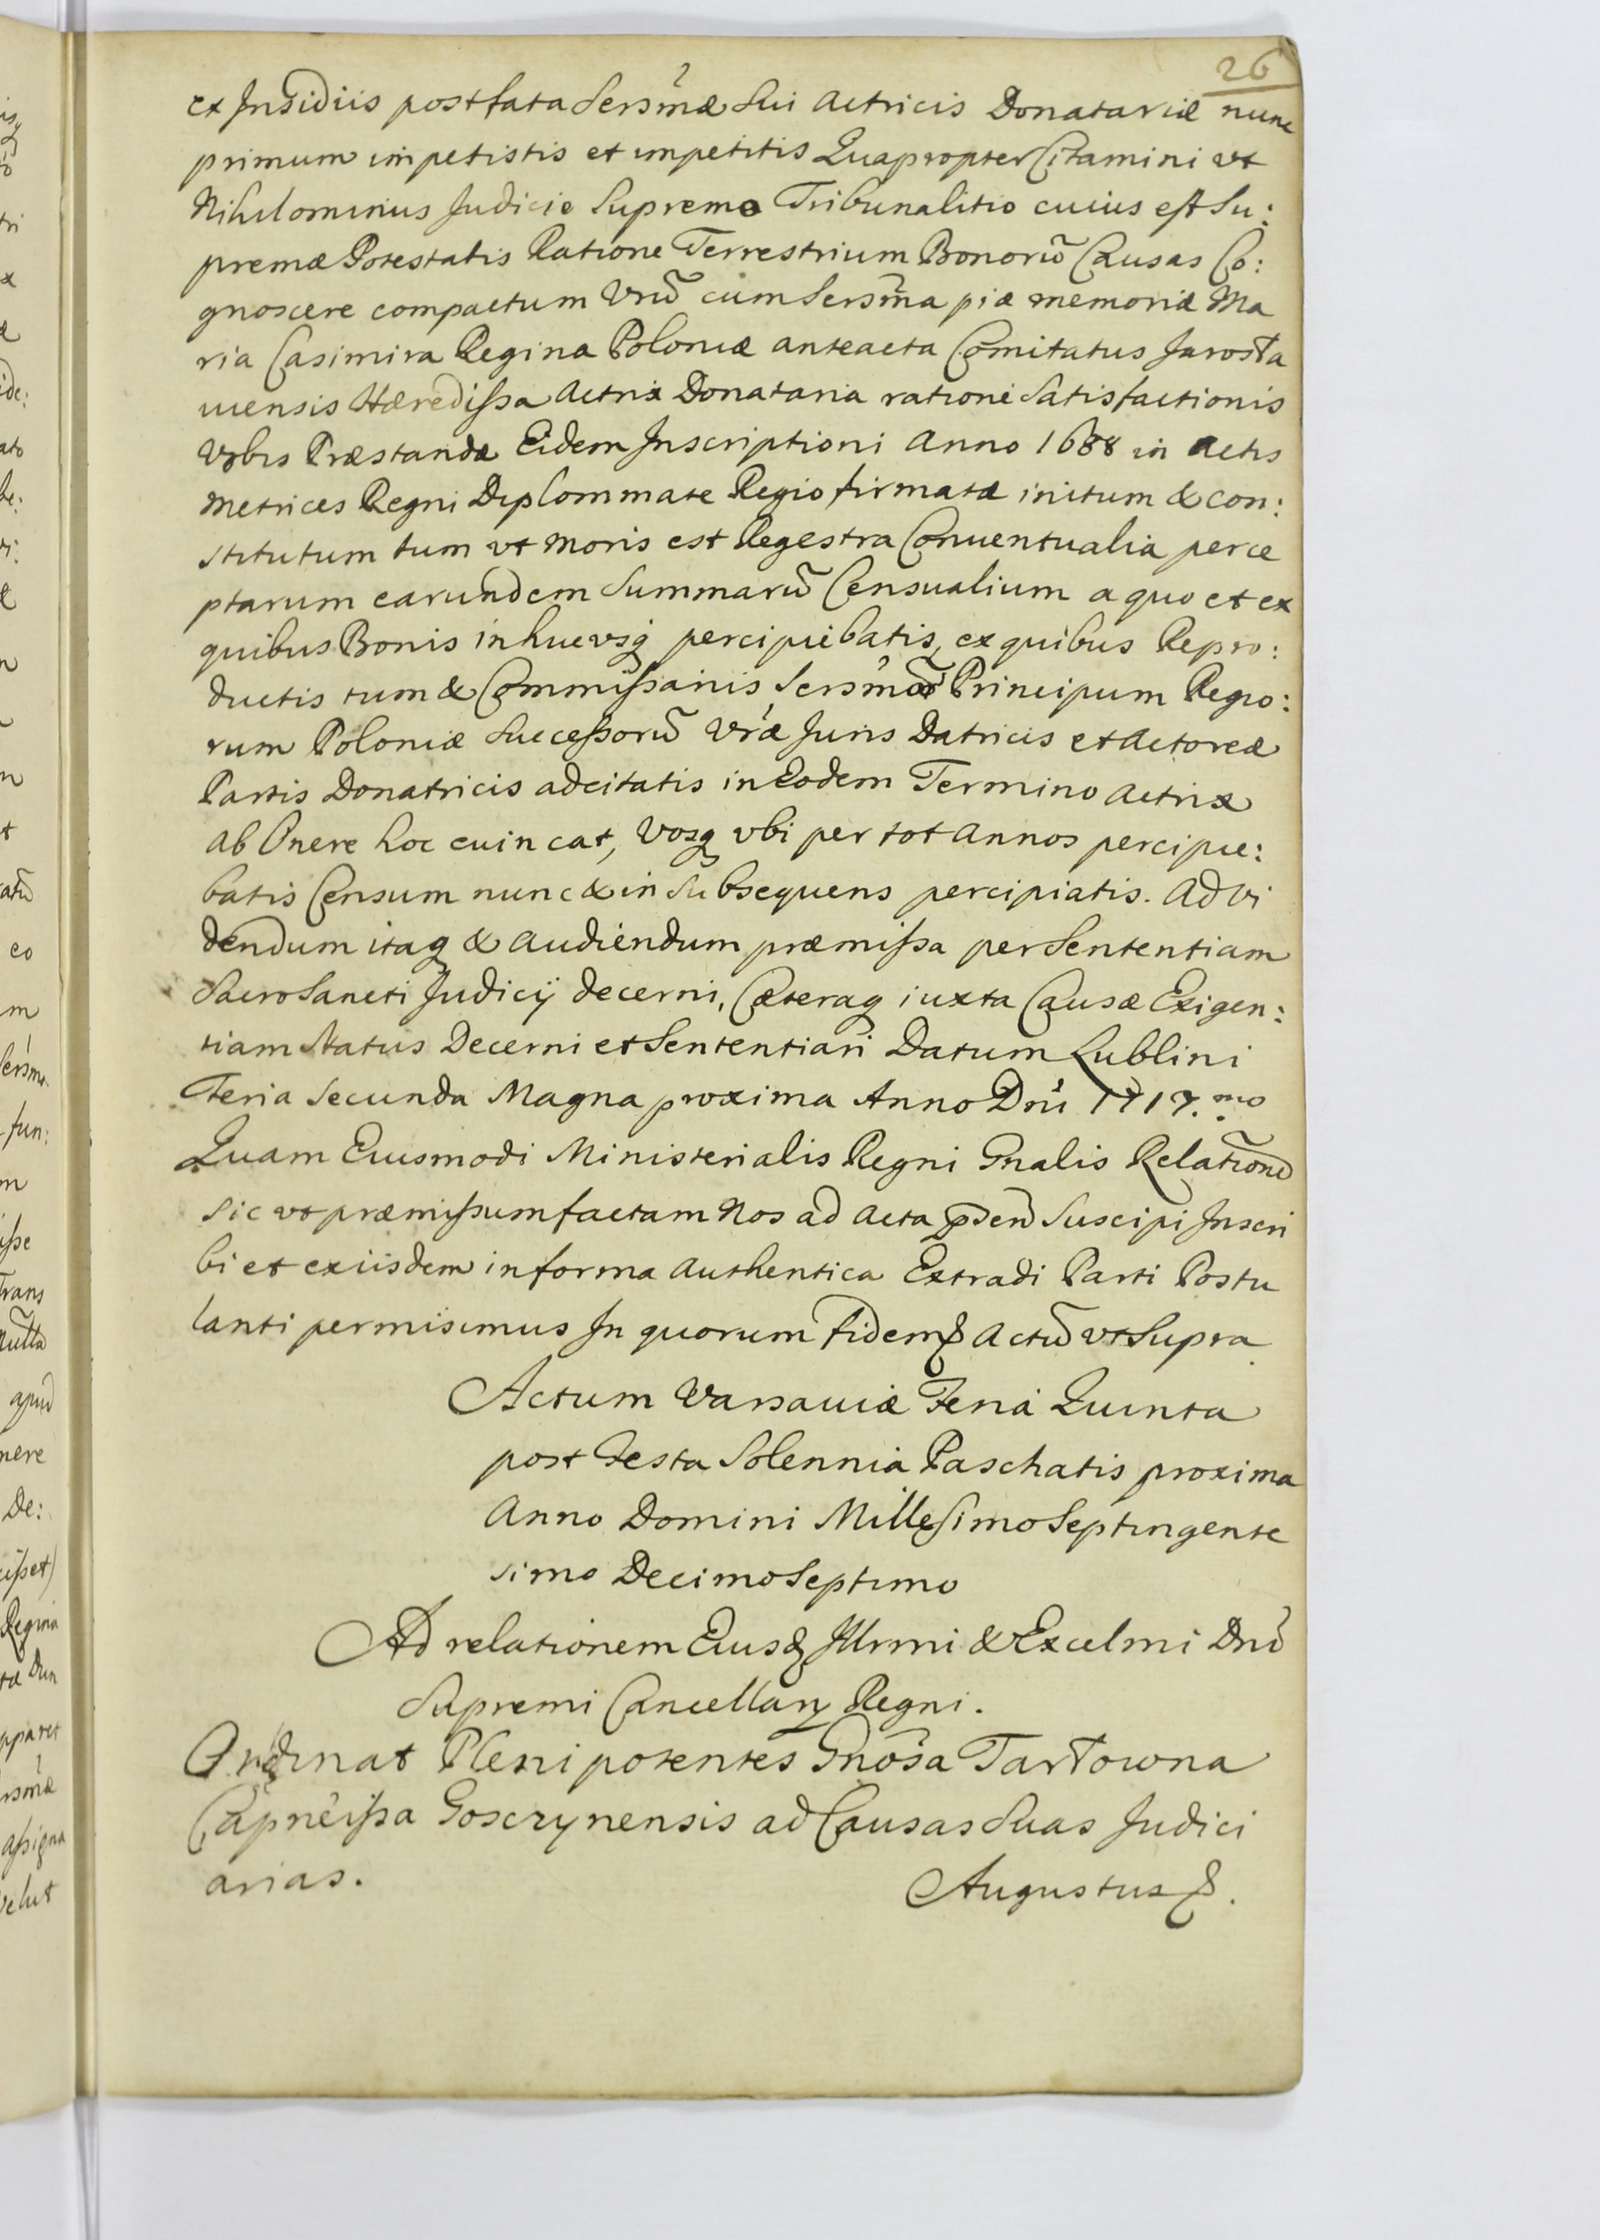 26
ex Insidiis post fata Sersmæ Sui Actricis Donatariæ nunc
primum impetistis et impetitis Quapropter Citamini vt
Nihilominus Judicio Supremo Tribunalitio cuius est Su:
premæ Potestatis Ratione Terrestrium Bonorū Causas Co:
gnoscere compactum Vrū cum Sersma piæ memoriæ Ma
ria Casimira Regina Poloniæ anteacta Comitatus Jarosła
uiensis Hæredissa Actrix Donataria ratione Satisfactionis
Vobis Præstandæ Eidem Inscriptioni Anno 1688 in Actis
Metrices Regni Diplommate Regio firmatæ initum & con:
stitutum tum vt moris est Regestra Conuentualia perce
ptarum earundem Summarū Censualium a quo et ex
quibus Bonis in hucvsq percipiebatis, ex quibus Repro:
ductis tum & Commissariis Sersmor Principum Regio:
rum Poloniæ Successorū Vræ Juris Datricis et Actoreæ
Partis Donatricis adcitatis in Eodem Termino Actrix
ab Onere hoc euincat, Vosq vbi per tot Annos percipie:
batis Censum nunc & in Subsequens percipiatis. Ad Vi
dendum itaq & Audiendum præmissa per Sententiam
SacroSancti Judicij decerni, Cæteraq iuxta Causæ Exigen:
tiam Status Decerni et Sententiari Datum Lublini
Feria Secunda Magna proxima Anno Dni 1717.mo
Quam Eiusmodi Ministerialis Regni Gnalis Relationē
sic vt præmissum factam Nos ad Acta psen Suscipi Inscri
bi et exiisdem in forma Authentica Extradi Parti Postu
lanti permisimus In quorum fidem & Actū vt Supra
Actum Varsauiæ Feria Quinta
post Festa Solennia Paschatis proxima
Anno Domini Millesimo Septingente
simo Decimo Septimo
Ad relationem Eiusd Illrmi & Excelmi Dni
Supremi Cancellarij Regni.
Ordinat Plenipotentes Gnosa Tarłowna
Capneissa Goscrynensis ad Causas Suas Judici
arias.
Augustus &.